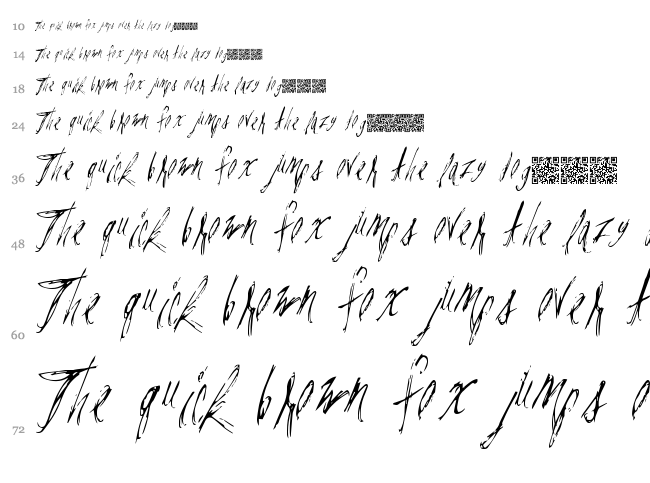 10 The quick brown fox jumps over the lazy dog
14 The quick brown fox jumps over the lazy dog
18 The quick brown fox jumps over the lazy dog
24 The quick brown fox jumps over the lazy dog
36 The quick brown fox jumps over the lazy dog
48 The quick brown fox jumps over the lazy
60 The quick brown fox jumps over t
72 The quick brown fox jumps o